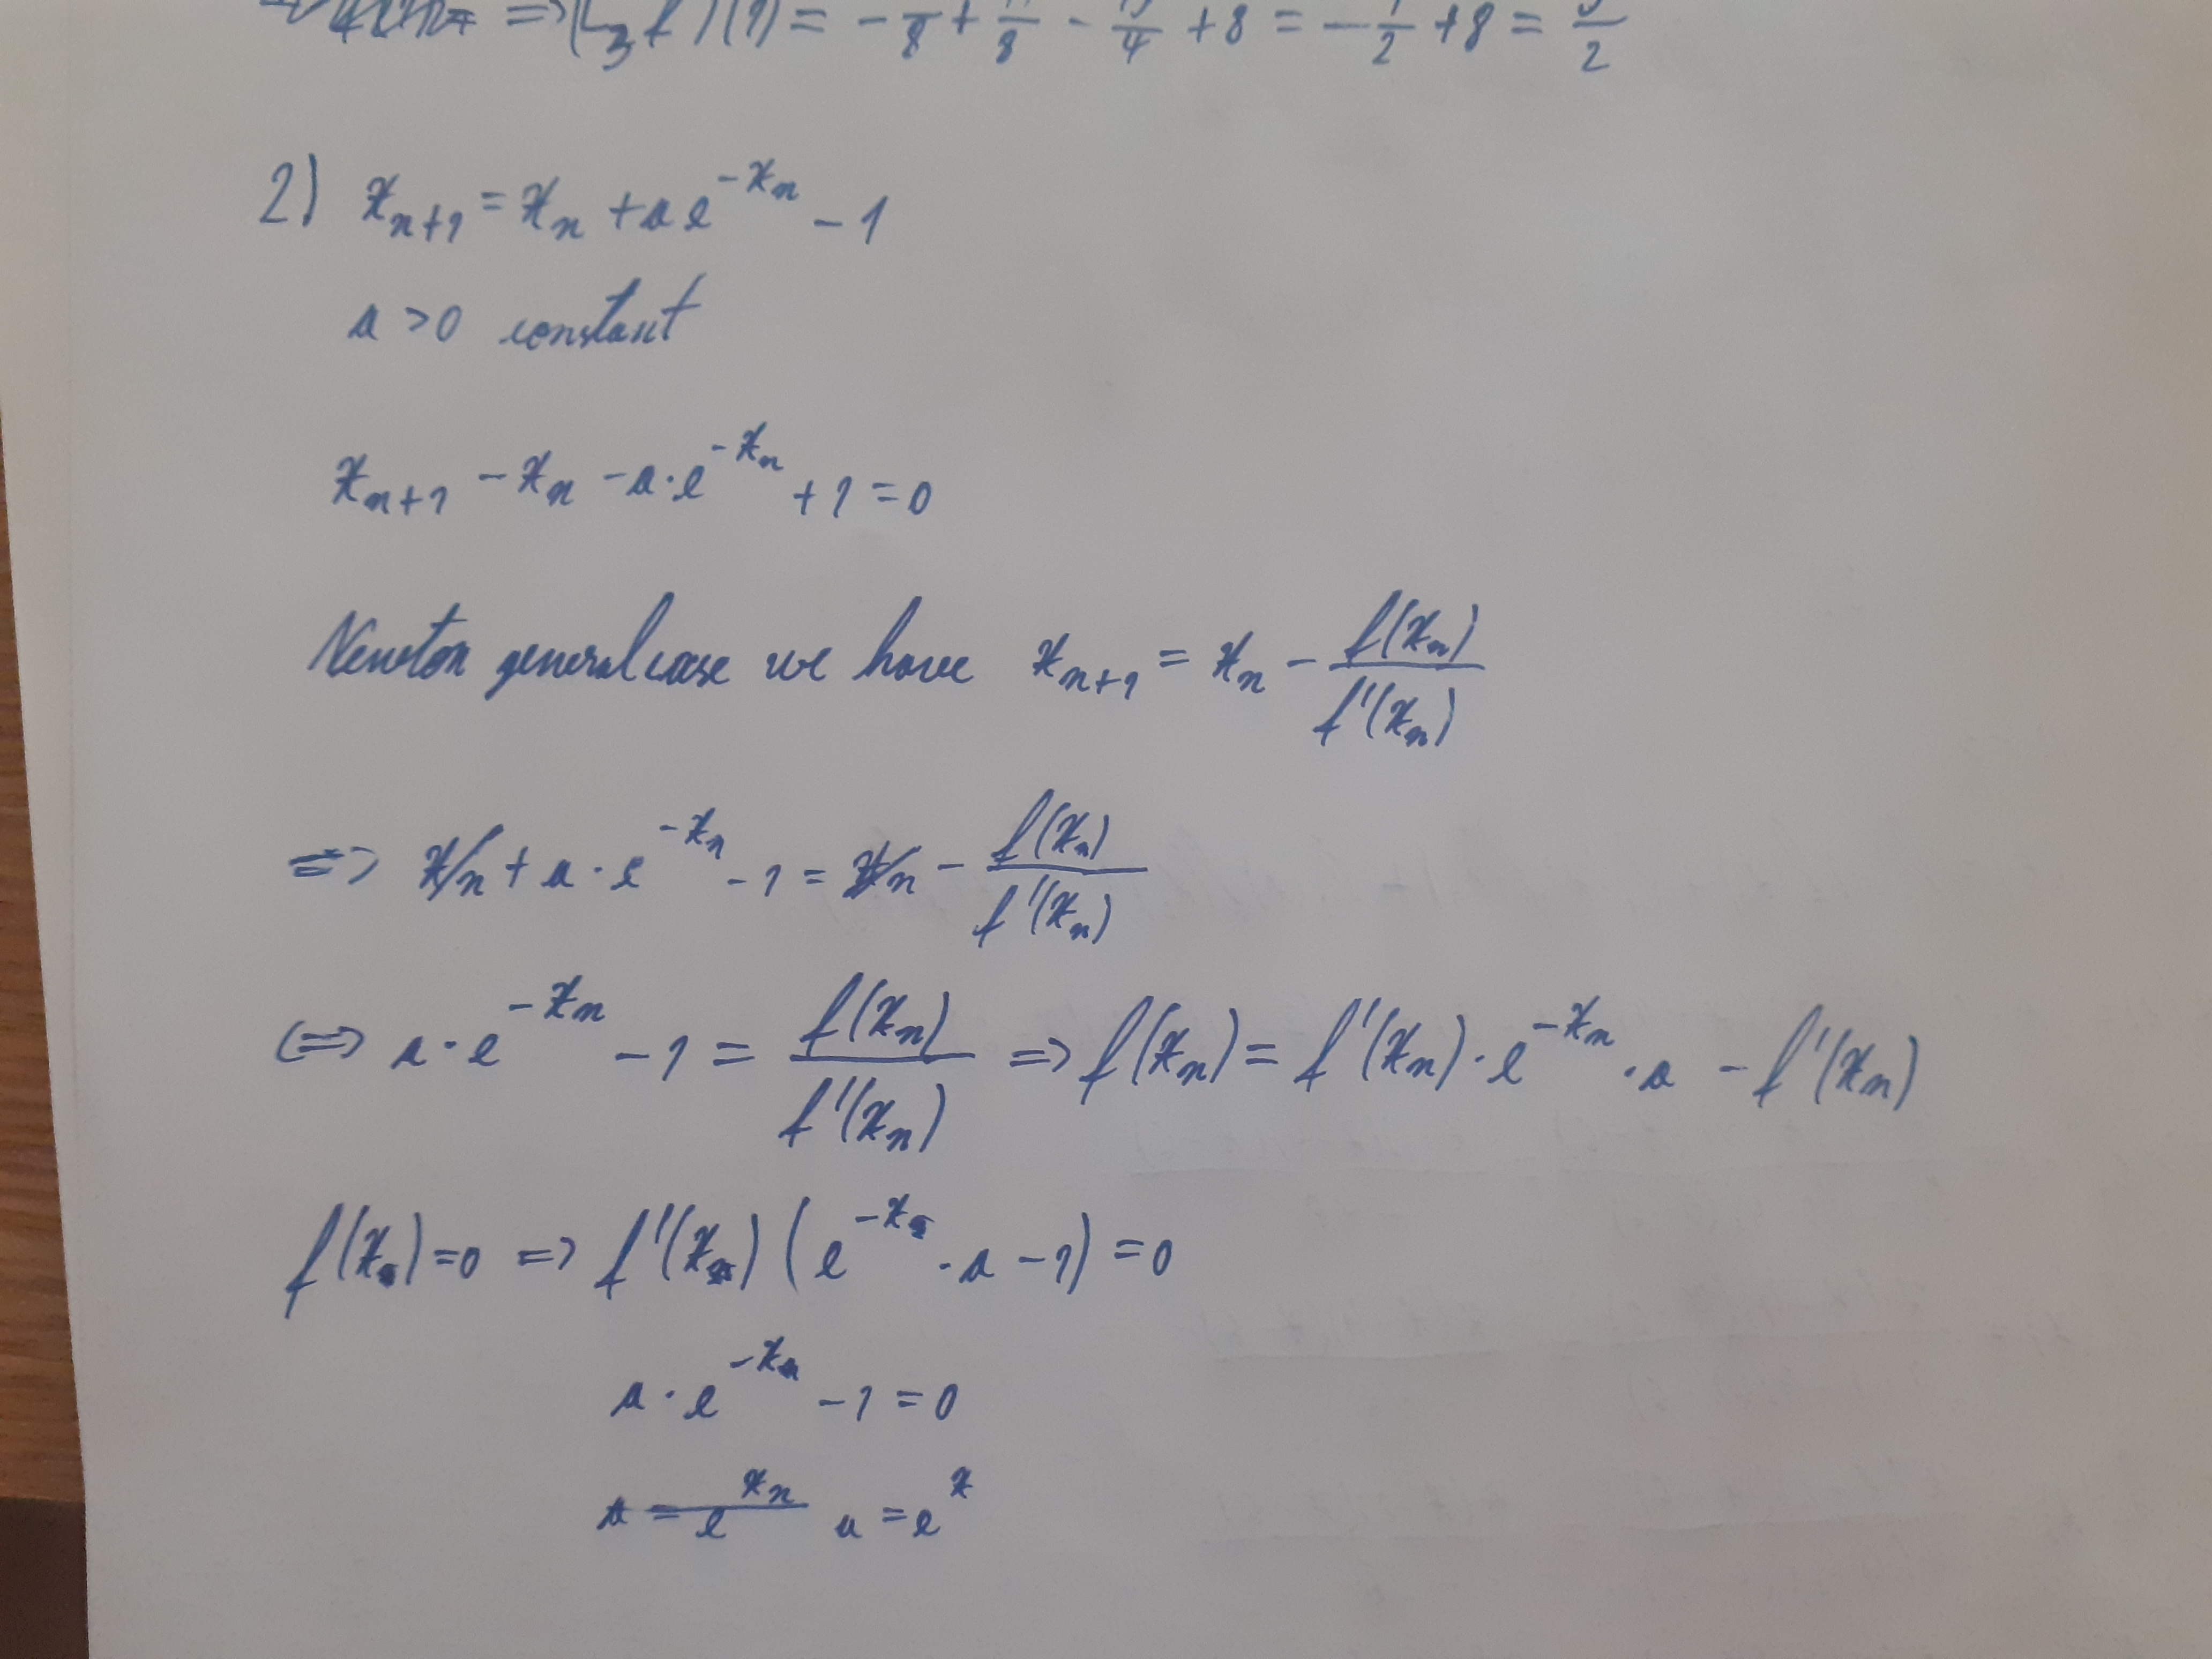 => (L_3 f)(1) = - \frac{}{8} + \frac{}{8} - \frac{}{4} + 8 = - \frac{1}{2} + 8 = \frac{}{2}
2) x_{n+1} = x_n + a e^{-x_n} - 1
a > 0 constant
x_{n+1} - x_n - a · e^{-x_n} + 1 = 0
Newton general case we have x_{n+1} = x_n - \frac{f(x_n)}{f'(x_n)}
=> x_n + a · e^{-x_n} - 1 = x_n - \frac{f(x_n)}{f'(x_n)}
<=> a · e^{-x_n} - 1 = \frac{f(x_n)}{f'(x_n)} => f(x_n) = f'(x_n) · e^{-x_n} · a - f'(x_n)
f(x_n) = 0 => f'(x_n) (e^{-x_n} · a - 1) = 0
a · e^{-x_n} - 1 = 0
a = e^{x_n} a = e^x